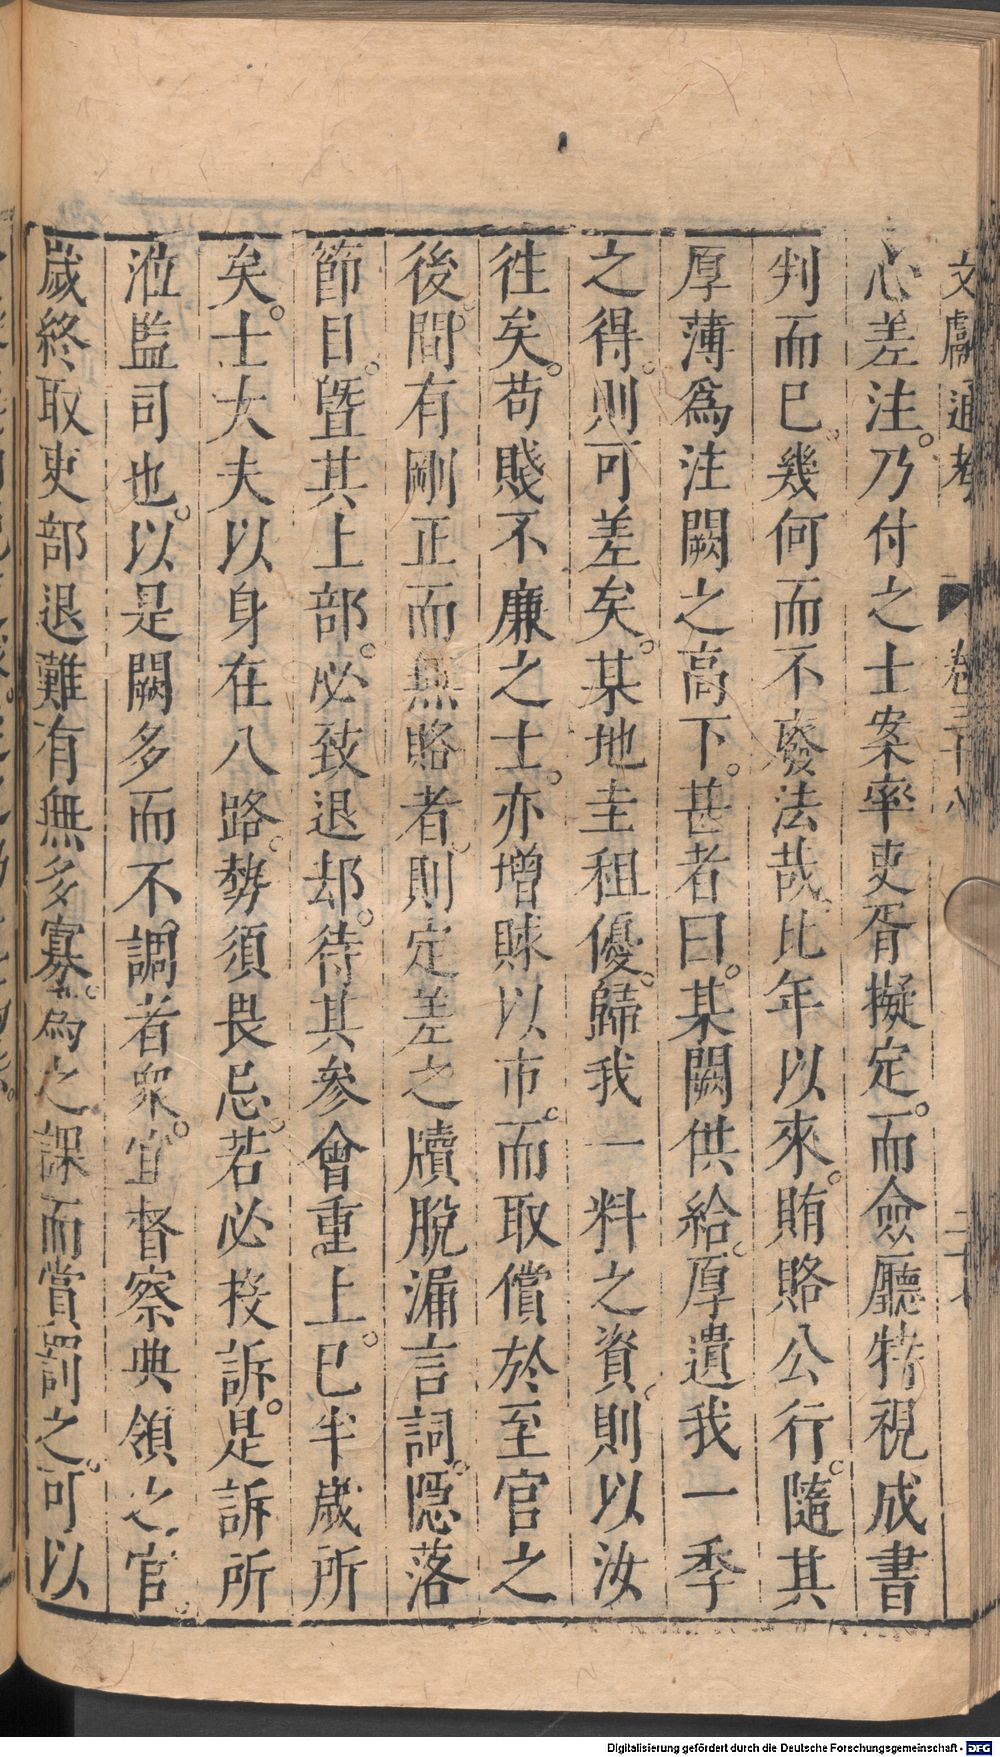 文獻通考 卷三十八
心差注。乃付之士案率吏胥擬定。而僉廳特視成書
判而已。幾何而不廢法哉。比年以來。賄賂公行。隨其
厚薄爲注闕之高下。甚者曰。某闕供給。厚遺我一季
之得。則可差矣。某地圭租優。歸我一料之資。則以汝
徃矣。苟賤不廉之士。亦增賕以市。而取償於至官之
後。間有剛正而無賂者。則定差之牘脫漏言詞。隱落
節目。曁其上部。必致退却。待其參會重上。已半歲所
矣。士大夫以身在八路。勢須畏忌。若必投訴。是訴所
涖監司也。以是闕多而不調者衆。宜督察典領之官。
歲終取吏部退難有無多寡。爲之課而賞罰之。可以
Digitalisierung gefördert durch die Deutsche Forschungsgemeinschaft - DFG